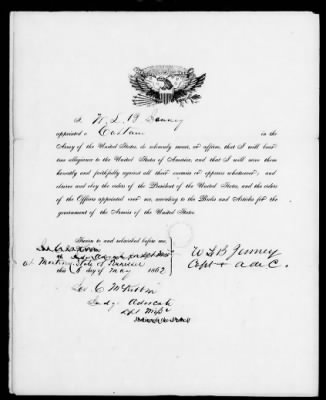 I W. L. B. Jenney
appointed a Captain in the
Army of the United States, do solemnly swear, or affirm, that I will bear
true allegiance to the United States of America, and that I will serve them
honestly and faithfully against all their enemies or opposers whatsoever; and
observe and obey the orders of the President of the United States, and the orders
of the Officers appointed over me, according to the Rules and Articles for the
government of the Armies of the United States.
Sworn to and subscribed before me,
at State of
this 6 day of May 1862
W L B Jenney
Capt & A de C.
Jos C McKibbin
Judge Advocate
Dpt Miss